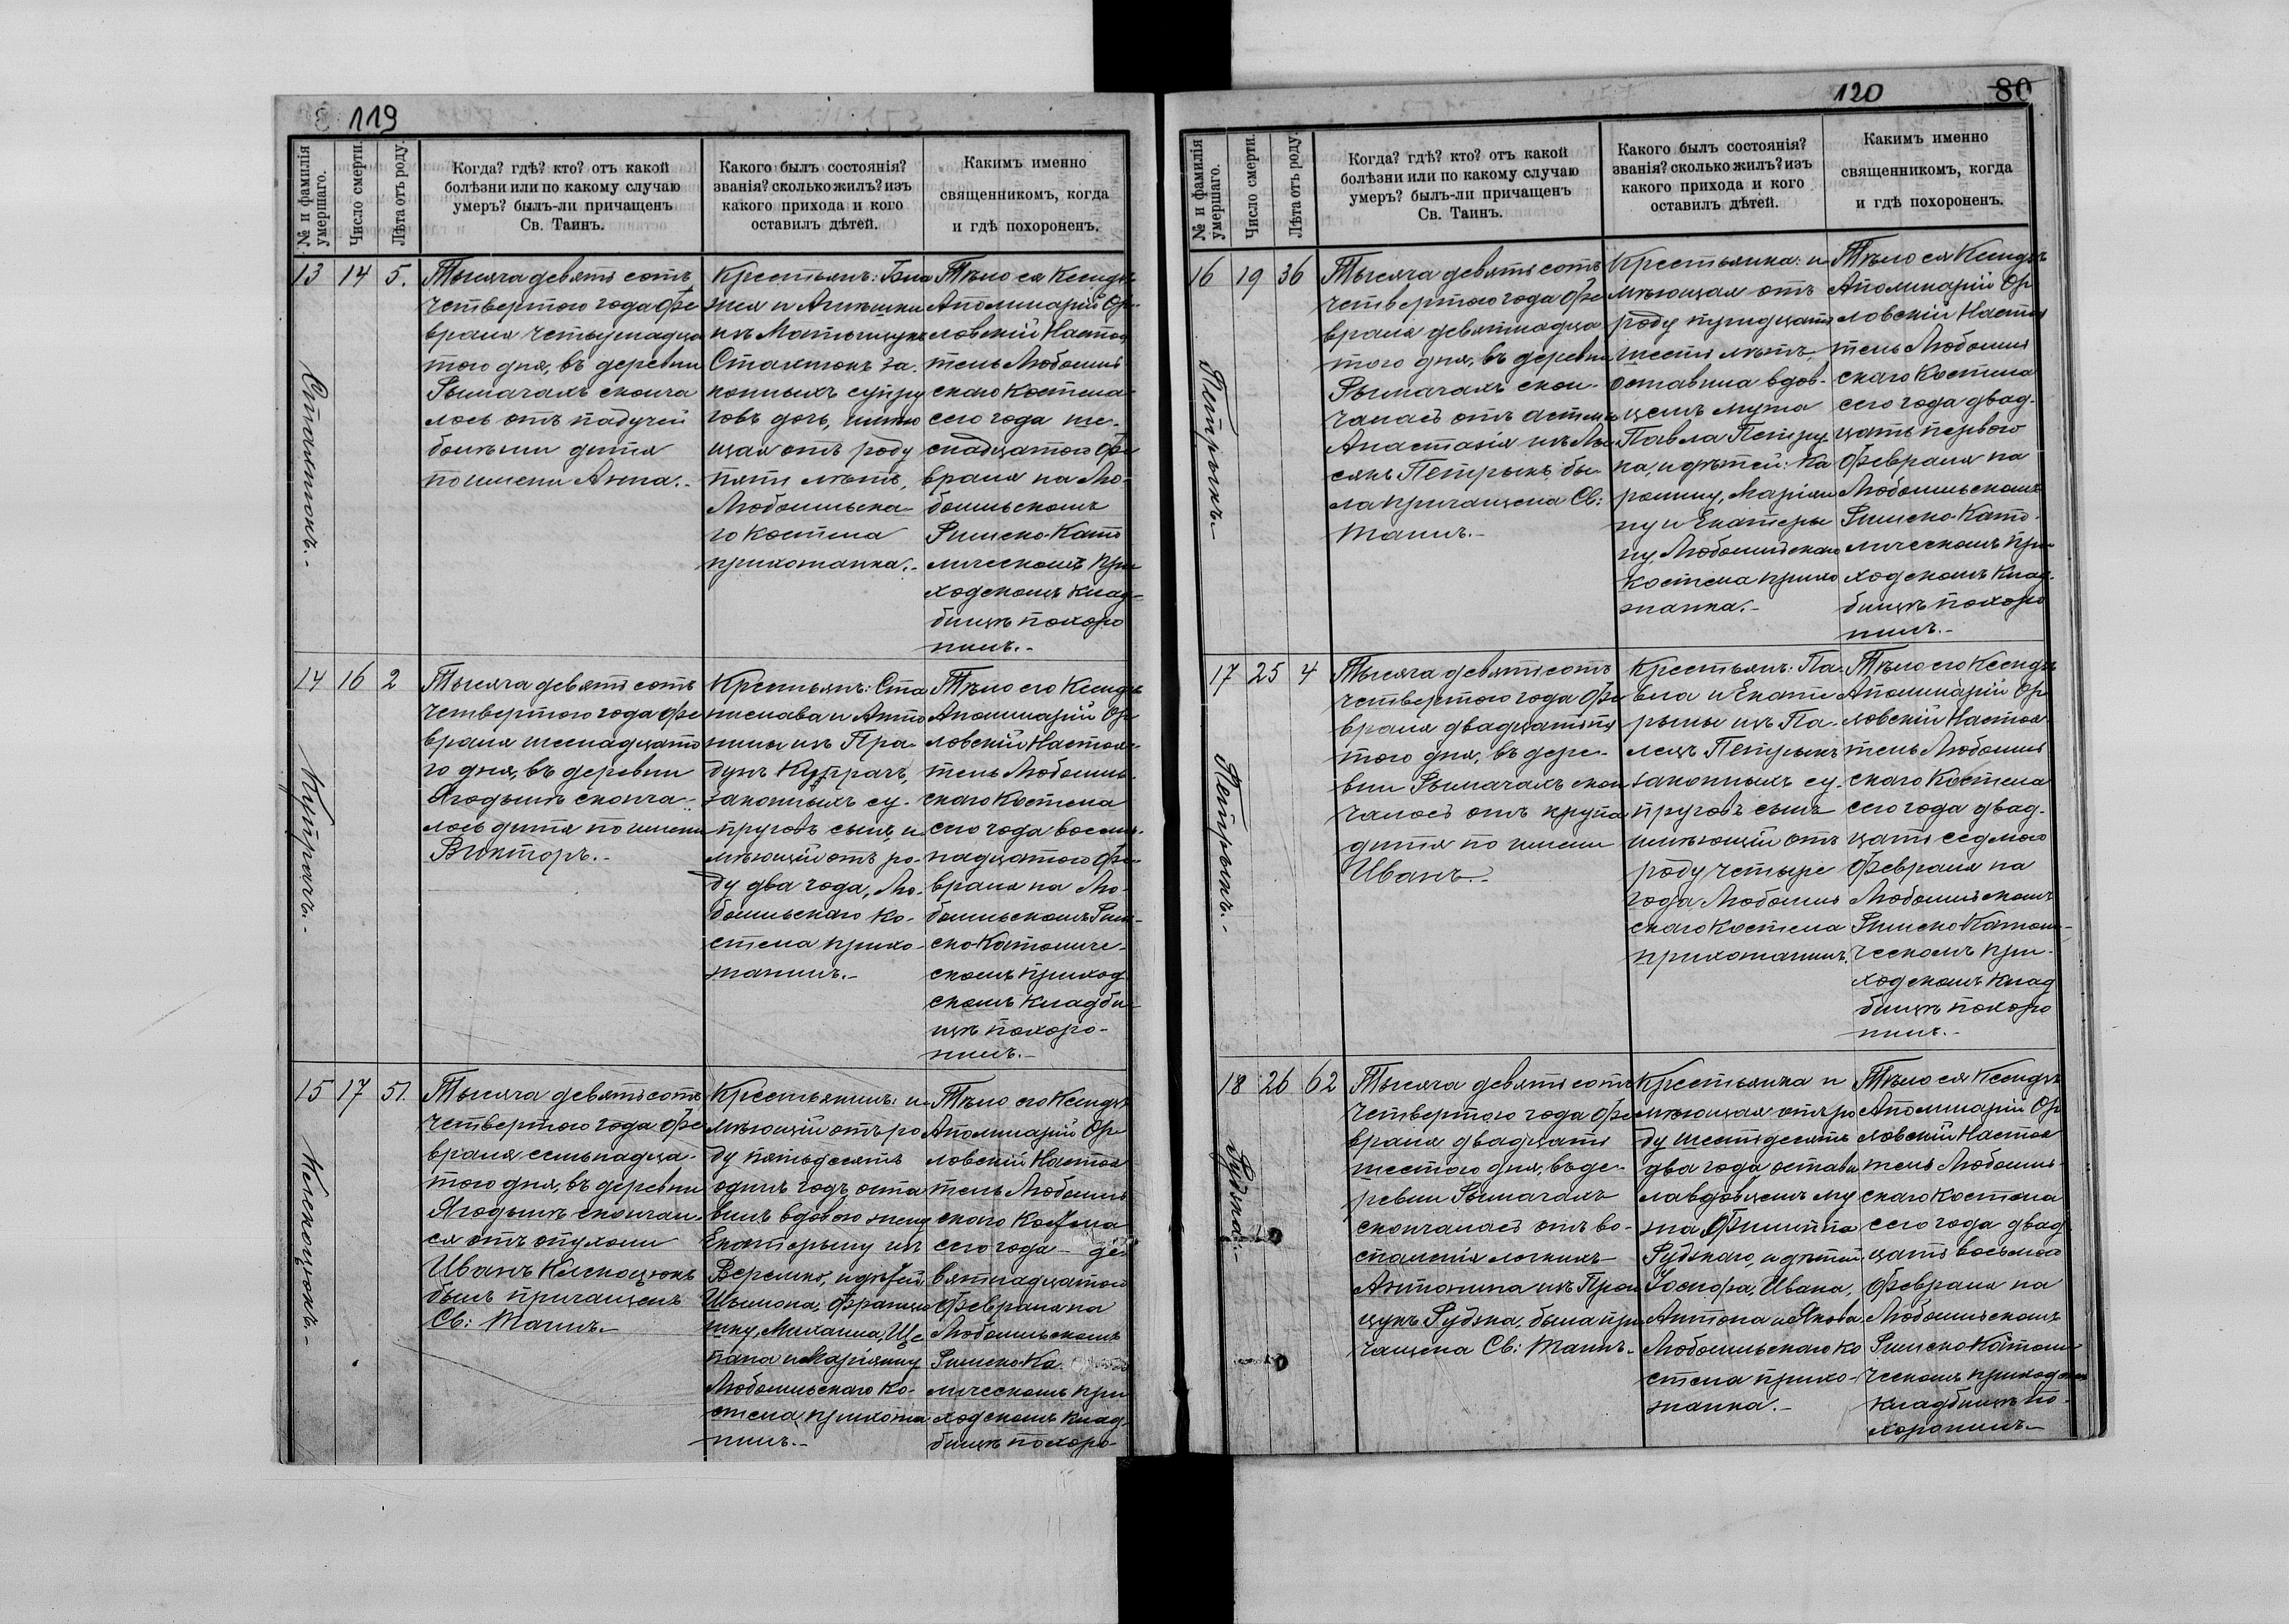 119
№ и фамилія
умершаго.
Число смерти.
Лѣта отъ роду.
Когда? гдѣ? кто? отъ какой
болѣзни или по какому случаю
умеръ? былъ-ли причащенъ
Св. Таинъ.
Какого былъ состоянія?
званія? сколько жилъ? изъ
какого прихода и кого
оставилъ дѣтей.
Какимъ именно
священникомъ, когда
и гдѣ похороненъ.
13
14
5.
Тысяча девятьсотъ
четвертого года фе
враля четырнадца
того дня, въ деревни
Рымачахъ сконча
лось отъ падучей
болѣзни дитя
по имени Анна.-
Крестьянъ: Бла
жея и Агнѣшки
изъ
Стахнюкъ за-
конныхъ супру
говъ дочь, имѣю
щая отъ роду
пять лѣтъ,
Любомльска-
го костела
прихожанка.-
Тѣло ея Ксендзъ
Аполинарій Ор-
ловскій Настоя
тель Любомль
скаго Костела
сего года ше-
снадцатого Фе
враля на Лю-
бомльскомъ
Римско-Като
лическомъ При
ходскомъ Клад-
бищѣ похоро
нилъ.-
Стахнюкъ.-
14
16
2
Тысяча девятьсотъ
четвертого года фе
враля шеснадцато
го дня, въ деревни
Ягодынѣ сконча-
лось дитя по имени
Викторъ.-
Крестьянъ: Ста
нислава и Анто
нины изъ Пра-
дунъ Купрачъ,
законныхъ су-
пруговъ сынъ, и
мѣющій отъ ро-
ду два года, Лю-
бомльскаго Ко-
стела прихо-
жанинъ.-
Тѣло его Ксендзъ
Аполинарій Ор
ловскій Настоя-
тель Любомль-
скаго Костела
сего года восем-
надцатого Фе-
враля на Лю-
бомльскомъ Рим-
ско-Католиче-
скомъ приход
скомъ кладби-
щѣ похоро-
нилъ.-
Купрачъ.-
15
17
51.
Тысяча девятьсотъ
четвертого года фе
враля семнадца-
того дня, въ деревни
Ягодынѣ скончал-
ся отъ опухоли
Иванъ
былъ причащенъ
Св: Таинъ.-
Крестьянинъ: и-
мѣющій отъ ро
ду пятьдесятъ
одинъ годъ, оста
вилъ вдовою жену
Екатерину изъ
Веремко, и дѣтей
Шымона, Францi
шку, Михаила, Ще
пана и Маріянну
Любомльскаго Ко-
стела прихожа
нинъ.-
Тѣло его Ксендзъ
Аполинарій Ор
ловскій Настоя
тель Любомль
скаго Костела
сего года де-
вятнадцатого
Февраля на
Любомльскомъ
Римско-Ка
лическомъ При
ходскомъ Клад-
бищѣ похоро-
120
80
№ и фамилія
умершаго.
Число смерти.
Лѣта отъ роду.
Когда? гдѣ? кто? отъ какой
болѣзни или по какому случаю
умеръ? былъ-ли причащенъ
Св. Таинъ.
Какого былъ состоянія?
званія? сколько жилъ? изъ
какого прихода и кого
оставилъ дѣтей.
Какимъ именно
священникомъ, когда
и гдѣ похороненъ.
16
19
36
Тысяча девятьсотъ
четвертого года фе
враля девятнадца
того дня, въ деревни
Рымачахъ скон-
чалась отъ астмы
Анастасія изъ Лы
сякъ Петрыкъ, бы-
ла причащена Св:
Таинъ.-
Крестьянка: и
мѣющая отъ
роду тридцать
шесть лѣтъ,
оставила вдов-
цемъ мужа
Павла Петры
ка, и дѣтей: Ка
ролину, Маріян
ну и Екатеры
ну, Любомльскаго
Костела прихо
жанка.-
Тѣло ея Ксендзъ
Аполинарій Ор
ловскій Настоя
тель Любомль
скаго Костела
сего года двад-
цать первого
Февраля на
Любомльскомъ
Римско-Като-
лическомъ При
ходскомъ Клад-
бищѣ похоро
нилъ.-
Петрыкъ.-
17
25
4
Тысяча девятьсотъ
четвертого года Фе
враля двадцать пя
того дня, въ дере-
вни Рымачахъ скон
чалось отъ крупа
дитя по имени
Иванъ.-
Крестьянъ: Па-
вла и Екате
рыны изъ Па-
лецъ Петрыкъ
законныхъ су-
пруговъ сынъ
имѣющій отъ
роду четыре
года, Любомль
скаго Костела
прихожанинъ.
Тѣло его Ксендзъ
Аполинарій Ор
ловскій Настоя
тель Любомль
скаго Костела
сего года двад-
цать седмого
Февраля на
Любомльскомъ
Римско-Католи-
ческомъ При-
ходскомъ Клад
бищѣ похоро
нилъ.-
Петрыкъ.-
18
26
62
Тысяча девятьсотъ
четвертого года фе
враля двадцать
шестого дня, въ де-
ревни Рымачахъ
скончалась отъ во-
спаленія легкихъ
Антонина изъ Про
цукъ Рудзка, была при
чащена Св: Таинъ.-
Крестьянка и
мѣющая отъ ро
ду шестьдесятъ
два года, остави
ла вдовцемъ му
жа Филиппа
Рудзкаго, и дѣтей
Іосифа, Ивана,
Антона и Якова
Любомльскаго Ко
стела прихо-
жанка.-
Тѣло ея Ксендзъ
Аполинарій Ор
ловскій Настоя
тель Любомль-
скаго Костела
сего года двад
цать восьмого
Февраля на
Любомльскомъ
Римско-Католи
ческомъ приходскомъ
кладбищѣ по-
хоронилъ.-
Рудзка.-